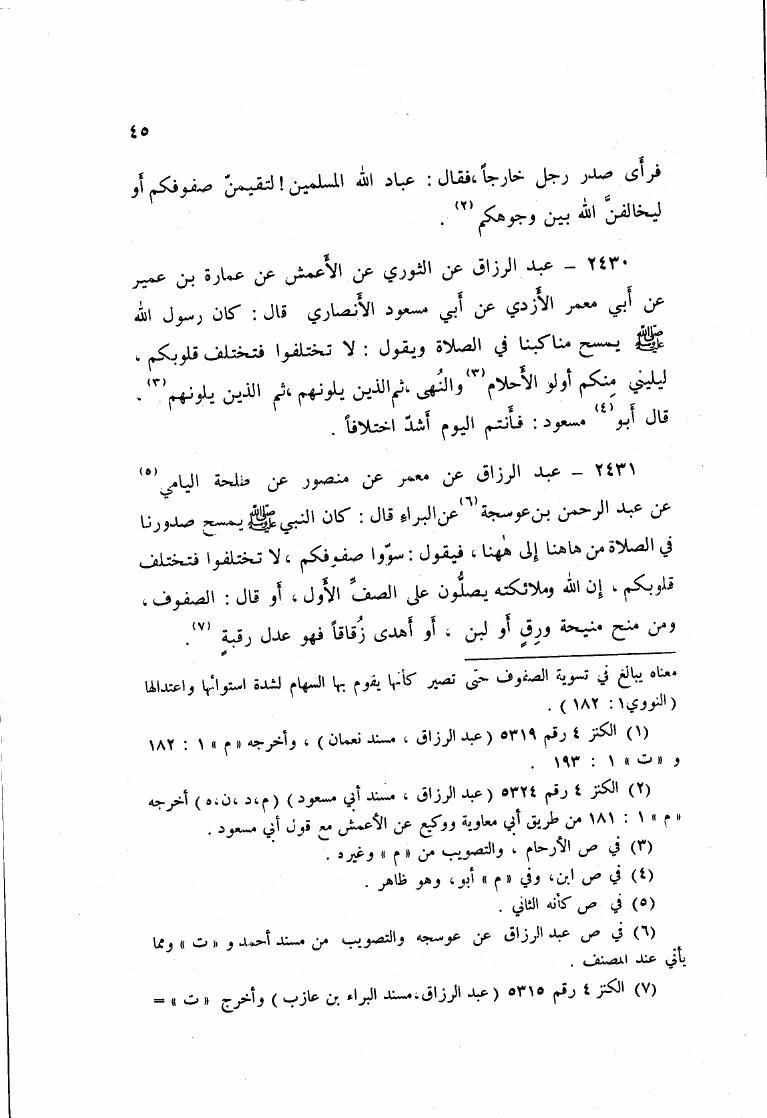 ٤٥
فرأى صدر رجل خارجاً، فقال : عباد الله المسلمين ! لتقيمنّ صفوفكم أو
ليخالفنَّ الله بين وجوهكم (٢) .
٢٤٣٠ – عبد الرزاق عن الثوري عن الأعمش عن عمارة بن عمير
عن أبي معمر الأزدي عن أبي مسعود الأنصاري قال : كان رسول الله
ﷺ يمسح مناكبنا في الصلاة ويقول : لا تختلفوا فتختلف قلوبكم ،
ليليني مِنكم أولو الأحلام (٣) والنُهى ، ثم الذين يلونهم ، ثم الذين يلونهم (٣) .
قال أبو (٤) مسعود : فأنتم اليوم أشدّ اختلافاً .
٢٤٣١ – عبد الرزاق عن معمر عن منصور عن طلحة اليامي (٥)
عن عبد الرحمن بن عوسجة (٦) عن البراءِ قال : كان النبي ﷺ يمسح صدورنا
في الصلاة من هاهنا إلى هٰهنا ، فيقول : سوّوا صفوفكم ، لا تختلفوا فتختلف
قلوبكم ، إن الله وملائكته يصلُّون على الصفِّ الأول ، أو قال : الصفوف ،
ومن منح منيحة ورِقٍ أو لبن ، أو أهدى زُقاقاً فهو عدل رقبةٍ (٧) .
معناه يبالغ في تسوية الصفوف حتى تصير كأنها يقوم بها السهام لشدة استوائها واعتدالها
(النووي ١ : ١٨٢ ) .
(١) الكنز ٤ رقم ٥٣١٩ ( عبد الرزاق ، مسند نعمان ) ، وأخرجه « م » ١ : ١٨٢
و « ت » ١ : ١٩٣ .
(٢) الكنز ٤ رقم ٥٣٢٤ ( عبد الرزاق ، مسند أبي مسعود ) ( م ، د ، ن ، ه ) أخرجه
« م » ١ : ١٨١ من طريق أبي معاوية ووكيع عن الأعمش مع قول أبي مسعود .
(٣) في ص الأرحام ، والتصويب من « م » وغيره .
(٤) في ص ابن ، وفي « م » أبو ، وهو ظاهر .
(٥) في ص كأنه الثاني .
(٦) في ص عبد الرزاق عن عوسجه والتصويب من مسند أحمد و « ت » ومما
يأتي عند المصنف .
(٧) الكنز ٤ رقم ٥٣١٥ ( عبد الرزاق ، مسند البراء بن عازب ) وأخرج « ت » =